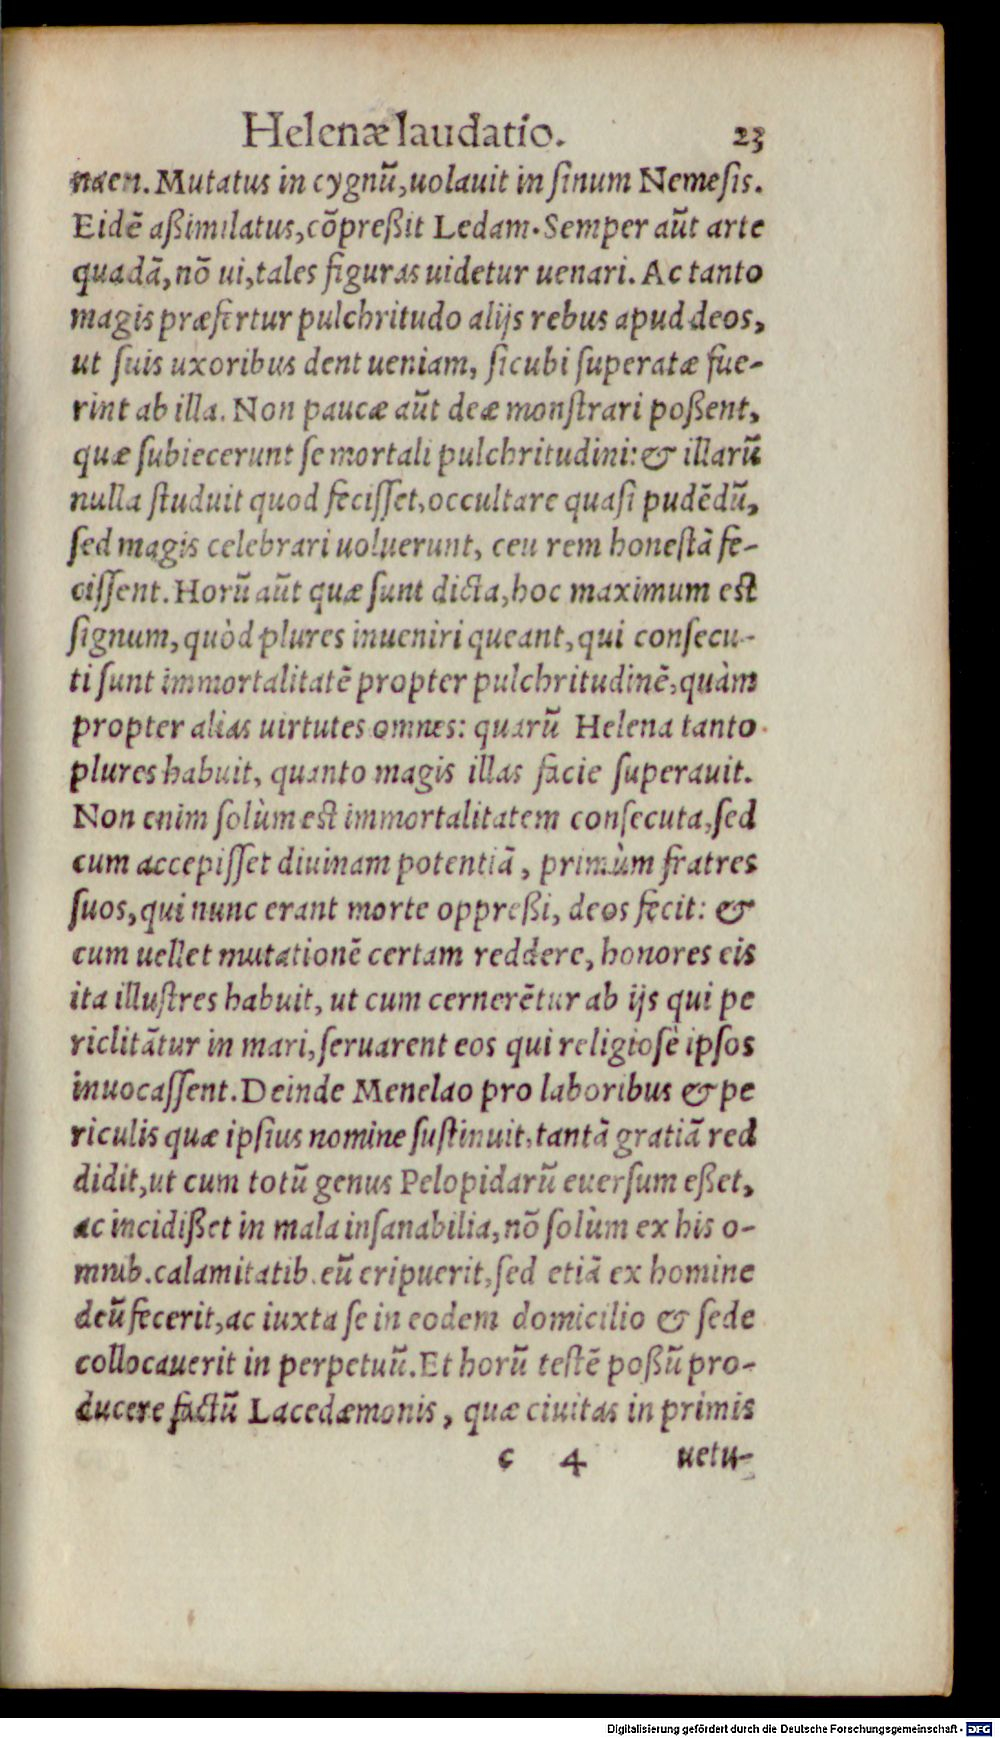 Helenæ laudatio. 23
naen. Mutatus in cygnũ, uolauit in ſinum Nemeſis.
Eidẽ aßimilatus, cõpreßit Ledam. Semper aũt arte
quadã, nõ ui, tales figuras uidetur uenari. Ac tanto
magis præfertur pulchritudo alijs rebus apud deos,
ut ſuis uxoribus dent ueniam, ſicubi ſuperatæ fue-
rint ab illa. Non paucæ aũt deæ monſtrari poßent,
quæ ſubiecerunt ſe mortali pulchritudini: & illarũ
nulla ſtuduit quod feciſſet, occultare quaſi pudẽdũ,
ſed magis celebrari uoluerunt, ceu rem honeſtã fe-
ciſſent. Horũ aũt quæ ſunt dicta, hoc maximum est
ſignum, quòd plures inueniri queant, qui conſecu-
ti ſunt immortalitatẽ propter pulchritudinẽ, quàm
propter alias uirtutes omnes: quarũ Helena tanto
plures habuit, quanto magis illas facie ſuperauit.
Non enim ſolùm est immortalitatem conſecuta, ſed
cum accepiſſet diuinam potentiã, primùm fratres
ſuos, qui nunc erant morte oppreßi, deos fecit: &
cum uellet mutationẽ certam reddere, honores eis
ita illuſtres habuit, ut cum cernerẽtur ab ijs qui pe
riclitãtur in mari, ſeruarent eos qui religioſè ipſos
inuocaſſent. Deinde Menelao pro laboribus & pe
riculis quæ ipſius nomine ſuſtinuit, tantã gratiã red
didit, ut cum totũ genus Pelopidarũ euerſum eßet,
ac incidißet in mala inſanabilia, nõ ſolùm ex his o-
mnib. calamitatib. eũ eripuerit, ſed etiã ex homine
deũ fecerit, ac iuxta ſe in eodem domicilio & ſede
collocauerit in perpetuũ. Et horũ teſtẽ poßũ pro-
ducere factũ Lacedæmonis, quæ ciuitas in primis
c 4 uetu-
Digitalisierung gefördert durch die Deutsche Forschungsgemeinschaft - DFG